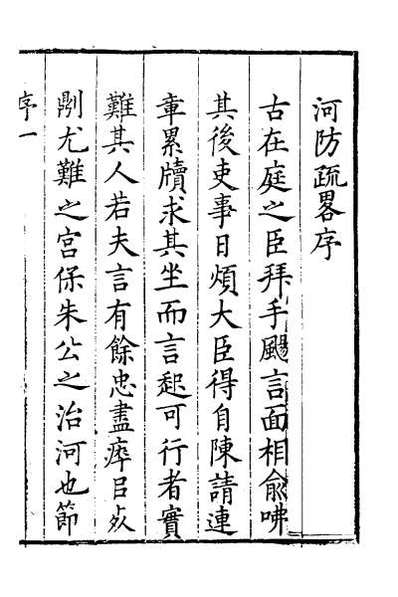 河防疏畧序
古在庭之臣拜手颺言面相俞咈
其後吏事日煩大臣得自陳請連
章累牘求其坐而言起可行者實
難其人若夫言有餘忠盡瘁㠯
尤難之宫保朱公之治河也節
序一